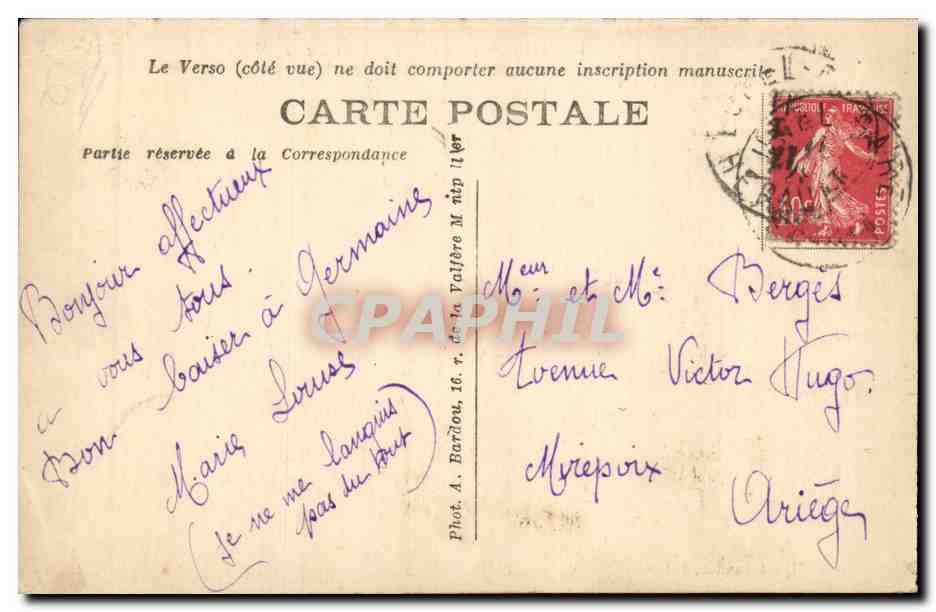 Le Verso (côté vue) ne doit comporter aucune inscription manuscrite
CARTE POSTALE
Partie réservée à la Correspondance
Bonjour affectueux
à vous tous.
Bon baiser à Germaine
Marie Louise
(je ne me languis
pas du tout)
Phot. A. Bardou, 16. r. de la Valfère M ntp lier
RÉPUBLIQUE FRANÇAISE
POSTES
Meur et Me Bergès
Avenue Victor Hugo.
Mirepoix
Ariège
CPAPHIL